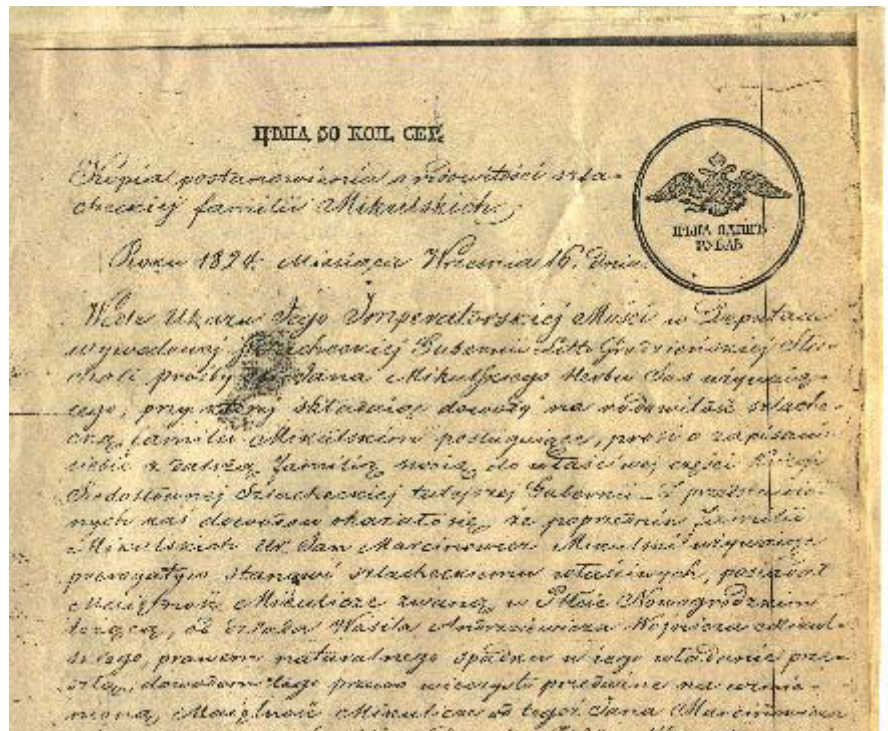 ЦѢНА 50 КОП. СЕР.
Kopia postanowienia o rodowitości szla-
checkiej familii Mikulskich.
ЦѢНА ОДИНЪ
РУБЛЬ
Roku 1824. Miesiąca Września 16. Dnia.
Wedle Ukazu Jego Imperatorskiej Mości w Deputacii
wywodowej Szlacheckiej Gubernii Litt. Grodzieńskiej
prośby Jana Mikulskiego Herbu Sas używaią-
cego, przy którey składaiąc dowody na rodowitość szlache-
cką familii Mikulskim posługuiące, prosi o zapisanie
siebie z całą familią swoią do właściwej części Księgi
Rodosłownej Szlacheckiej tutejszej Gubernii. Z przedstawio-
nych zaś dowodow okazało się, że poprzednik familii
Mikulskich Ur. Jan Marcinowicz Mikulski używaiąc
prerogatyw stanowi szlacheckiemu właściwych, posiadał
Maiętność Mikulicze zwaną w Ptcie Nowogrodzkim
leżącą, od Wasila Andrzeiewicza Mikul-
skiego, prawem naturalnego spadku w iego władanie prze-
szłą, dowodem tego prawo wieczysto przedażne na wzmie-
nioną Maiętność Mikulicze od tegoż Jana Marcinowicza